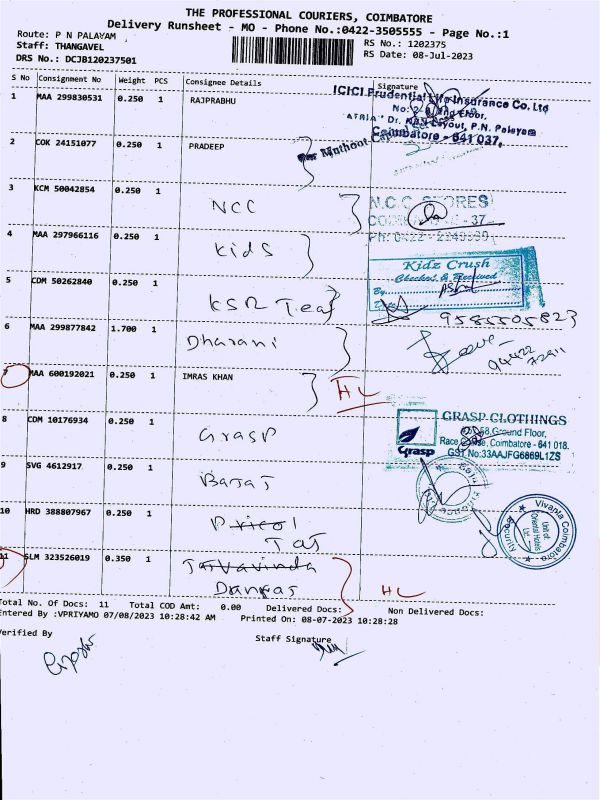 THE PROFESSIONAL COURIERS, COIMBATORE
Delivery Runsheet - MO - Phone No.:0422-3505555 - Page No.:1
Route: P N PALAYAM
Staff: THANGAVEL
DRS No.: DCJB120237501
RS No.: 1202375
RS Date: 08-Jul-2023
S No Consignment No Weight PCS Consignee Details Signature
1 MAA 299830531 0.250 1 RAJPRABHU
ICICI Prudential Life Insurance Co. Ltd
No: 2nd Floor,
"ATRIA" Dr. Layout, P.N. Palayam
Coimbatore - 641 037.
2 COK 24151077 0.250 1 PRADEEP
For Muthoot
3 KCM 50042854 0.250 1 NCC
N.C.C. STORES
- 37
PH: 0422 -
4 MAA 297966116 0.250 1 Kids
Kidz Crush
Checked & Received
By
5 CDM 50262840 0.250 1 KSR Teaf
9585505823
6 MAA 299877842 1.700 1 Dharani
94422
7 MAA 600192021 0.250 1 IMRAS KHAN HL
8 CDM 10176934 0.250 1 Grasp
GRASP CLOTHINGS
Ground Floor,
Race Course, Coimbatore - 641 018.
GST No:33AAJFG6869L1ZS
Grasp
9 SVG 4612917 0.250 1 Bajaj
10 HRD 388807967 0.250 1 Pricol
Taj
Vivanta Coimbatore
Unit of
Oriental Hotels
Ltd.
Security
11 SLM 323526019 0.350 1
HL
Total No. Of Docs: 11 Total COD Amt: 0.00 Delivered Docs: Non Delivered Docs:
Entered By :VPRIYAMO 07/08/2023 10:28:42 AM Printed On: 08-07-2023 10:28:28
Verified By Staff Signature